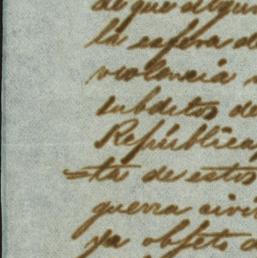 de que algun
la esfera de
violencia
subditos de
República,
=ta de estos
guerra civi
ya objeto d